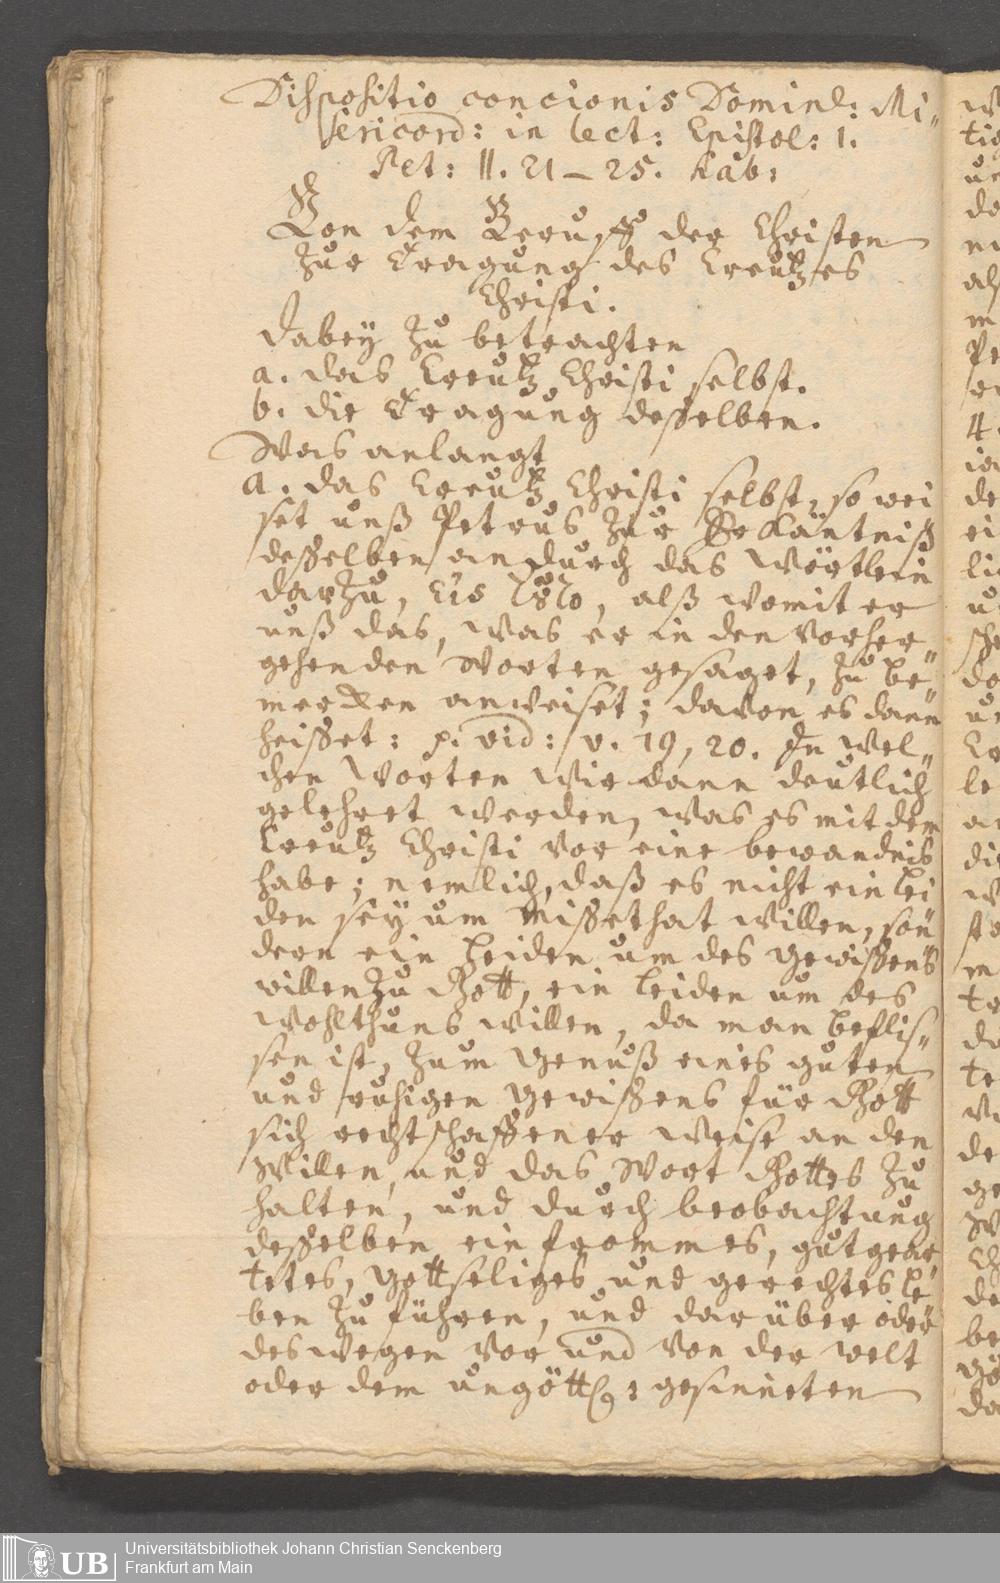 Dispositio concionis Dominl: Mi„
sericord: in lect: Epistol: 1.
Pet: II. 21–25. hab:
Von dem Beruff der Christen
zur Tragung des Creutzes
Christi.
Dabey zu betrachten
a. das Creutz Christi selbst.
b. die Tragung desselben.
Was anlangt
a. das Creutz Christi selbst, so wei
set unß Petrus zur Erkäntniß
desselben an durch das Wörtlein
darzu, εἰς τοῦτο, alß womit er
unß das, was er in den vorher„
gehenden Worten gesaget, zu be„
mercken anweiset; davon es dann
heisset: p. vid: v. 19, 20. In wel„
chen Worten wir dann deutlich
gelehret werden, was es mit dem
Creutz Christi vor eine bewandnis
habe; nemlich, daß es nicht ein lei
den sey um Missethat willen, son
dern ein Leiden um des Gewissens
willen zu Gott, ein Leiden um des
Wohlthuns willen, da man beflis„
sen ist, zum Genuß eines guten
und ruhigen Gewissens für Gott
sich rechtschaffener Weise an den
Willen, und das Wort Gottes zu
halten, und durch beobachtung
desselben ein frommes, gutgear
tetes, gottseliges und gerechtes le
ben zu führen, und darüber oder
deswegen vor und von der welt
oder dem ungöttl: gesinneten
UB
Universitätsbibliothek Johann Christian Senckenberg
Frankfurt am Main